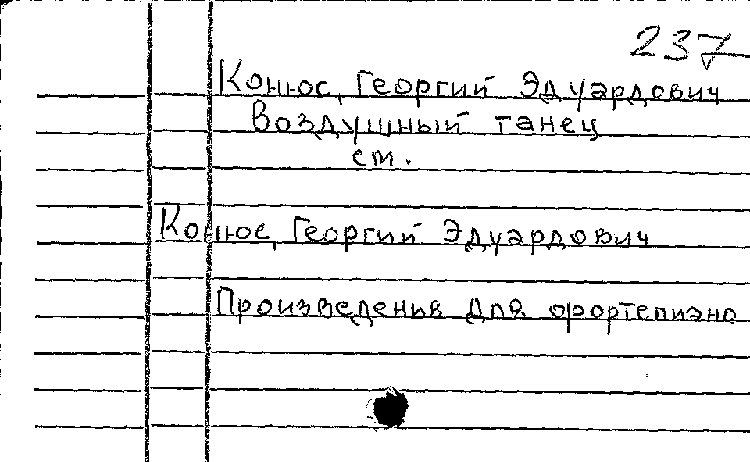 237
Конюс, Георгий Эдуардович
Воздушный танец
см.
Конюс, Георгий Эдуардович
Произведенья для фортепиано